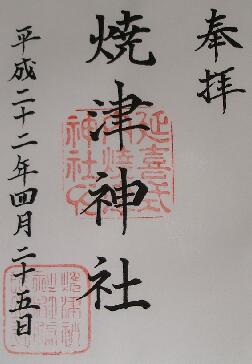 奉拝
焼津神社
平成二十二年四月二十五日
延喜式
内焼津
神社